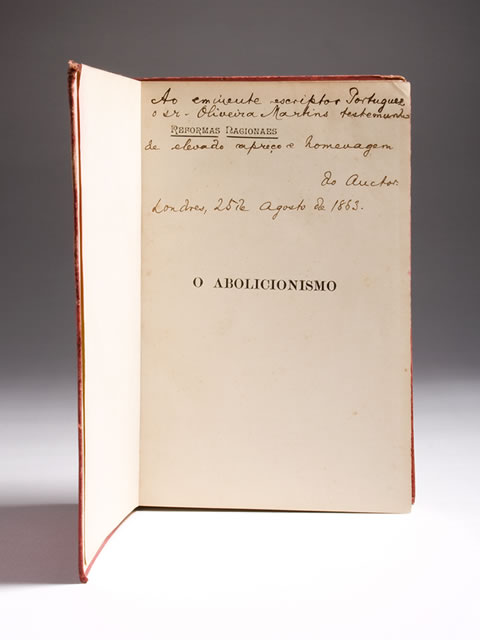 Ao eminente escriptor Portuguez
o sr. Oliveira Martins testemunho
REFORMAS NACIONAES
de elevado apreço e homenagem
do Auctor.
Londres, 25 de Agosto de 1883.
O ABOLICIONISMO